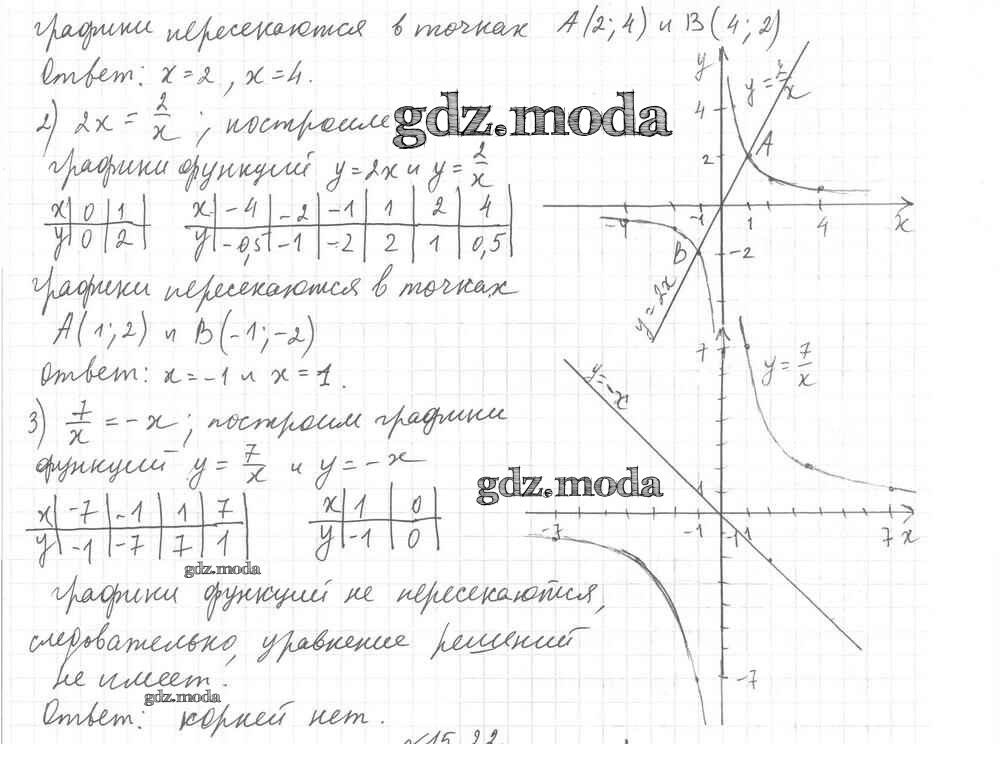 графики пересекаются в точках A(2;4) и B(4;2)
Ответ: x=2, x=4.
2) 2x = 2/x ; построим
графики функций y=2x и y=2/x
x | 0 | 1
y | 0 | 2
x | -4 | -2 | -1 | 1 | 2 | 4
y | -0,5 | -1 | -2 | 2 | 1 | 0,5
графики пересекаются в точках
A(1;2) и B(-1;-2)
Ответ: x=-1 и x=1.
3) 7/x = -x ; построим графики
функций y = 7/x и y = -x
x | -7 | -1 | 1 | 7
y | -1 | -7 | 7 | 1
x | 1 | 0
y | -1 | 0
графики функций не пересекаются,
следовательно, уравнение решений
не имеет.
Ответ: корней нет.
gdz.moda
gdz.moda
gdz.moda
gdz.moda
y
4
2
A
-4
-1
1
4
x
B
-2
y=2x
7
y=7/x
y=-x
1
-7
-1
-1
1
7
x
-7